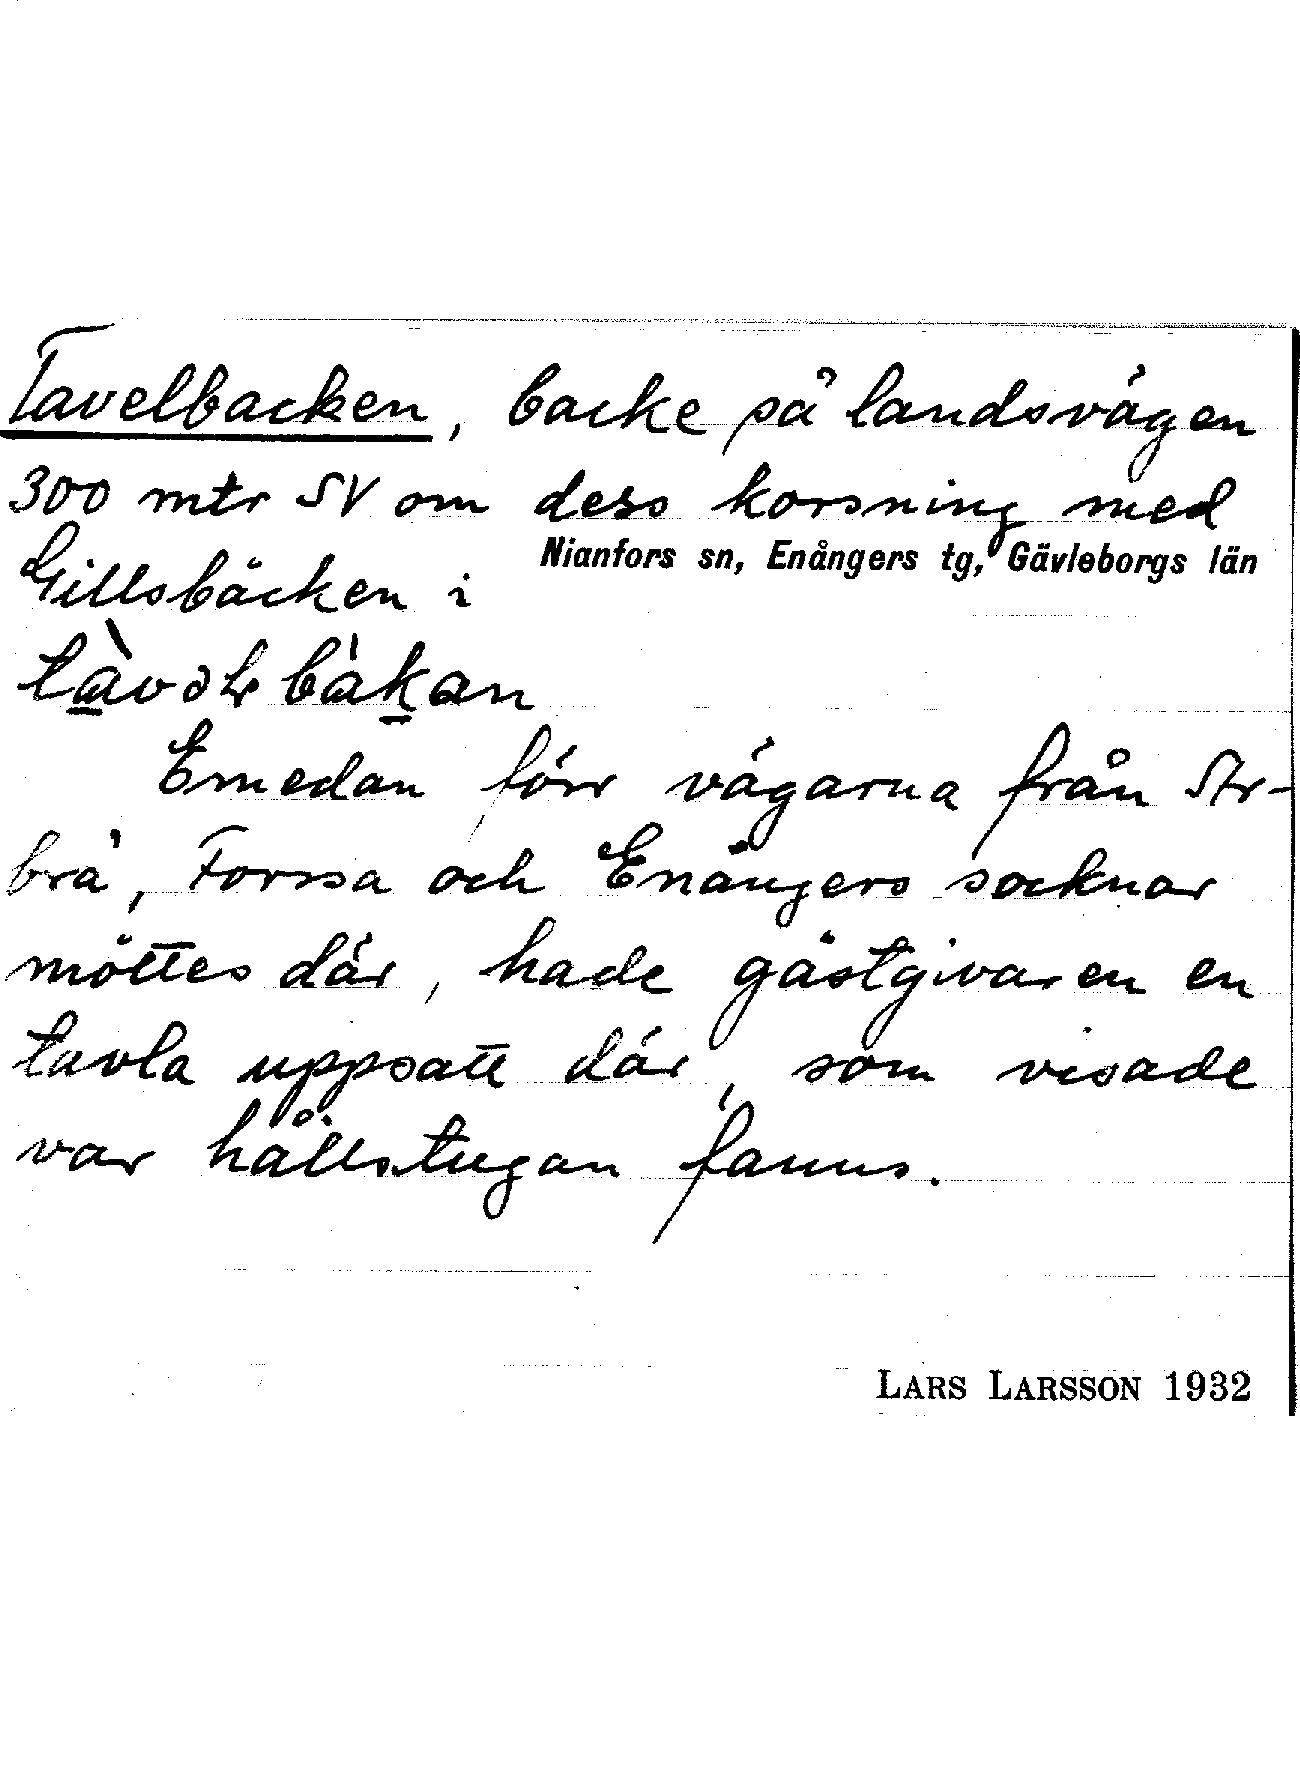 Tavelbacken, backe på landsvägen
300 mtr SV om dess korsning med
Nianfors sn, Enångers tg, Gävleborgs län
Gillsbäcken i
Emedan förr vägarna från Ar-
brå, Forssa och Enångers socknar
möttes där, hade gästgivaren en
tavla uppsatt där, som visade
var hållstugan fanns.
LARS LARSSON 1932